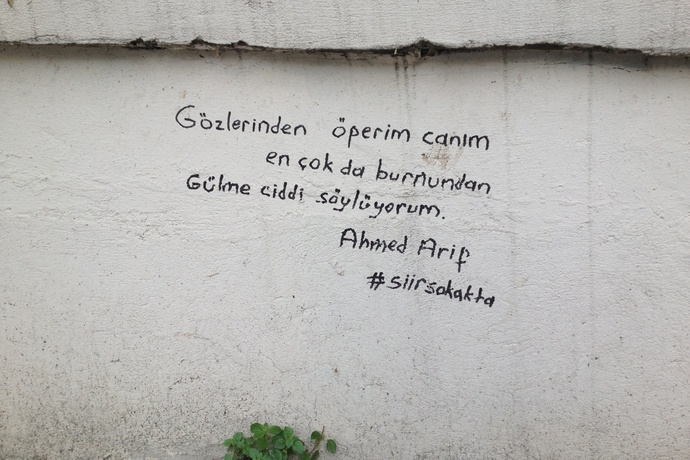 Gözlerinden öperim canım
en çok da burnundan
Gülme ciddi söylüyorum.
Ahmed Arif
#siirsokakta